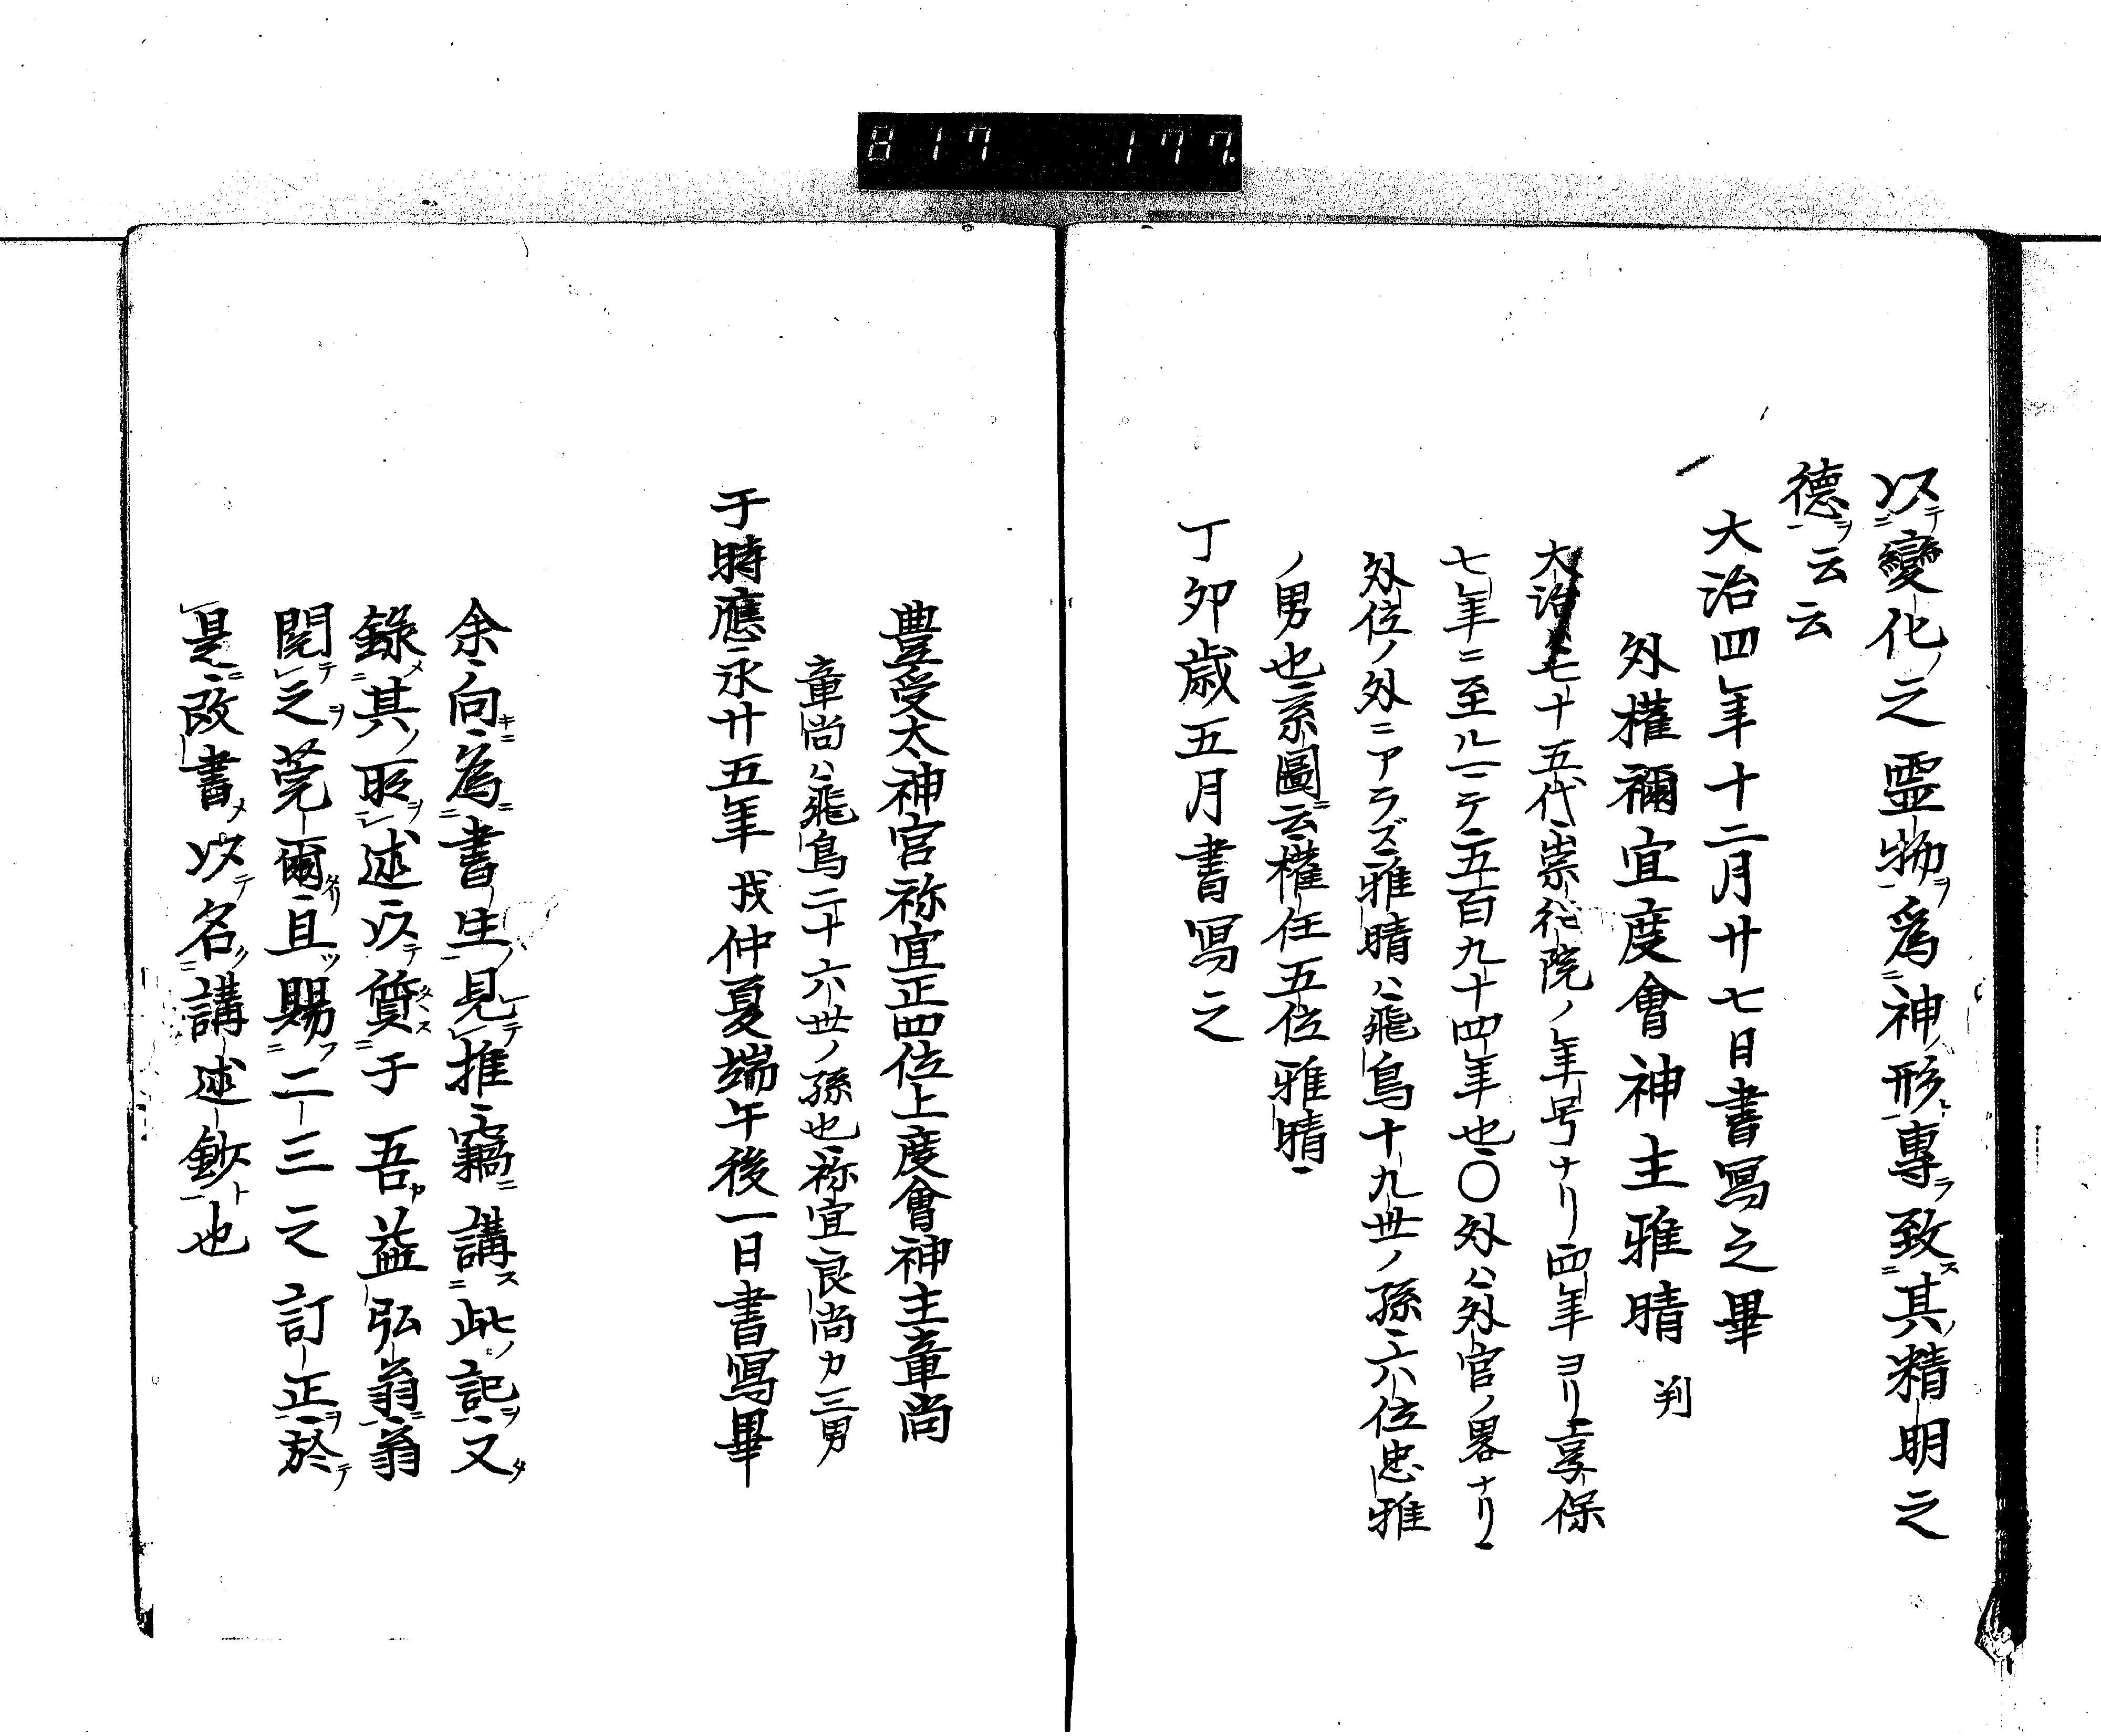 817 177
以テ變化ノ之霊物ヲ爲神ノ形ト專ラ致ス其ノ精明之
德ヲ云云
大治四年十二月廿七日書寫之畢
外權禰宜度會神主雅晴 判
大治ハ七十五代崇德院ノ年号ナリ四年ヨリ享保
七年ニ至ル二テ五百九十四年也〇外ハ外官ノ畧ナリ
外位ノ外ニアラズ雅晴ハ飛鳥十九世ノ孫六位忠雅
ノ男也系圖云權任五位雅晴
丁卯歳五月書寫之
豊受太神宮祢宜正四位上度會神主章尚
章尚ハ飛鳥二十六世ノ孫也祢宜良尚カ三男
于時應永廿五年戊仲夏端午後一日書寫畢
余向キニ為ニ書生ノ見テ推竊ニ講ス此ノ記ヲ又タ
錄メ其ノ所ヲ述以テ質タヽス于吾カ益弘翁翁
閲テ之ヲ莞爾タリ且ツ賜フ二三之訂正ヲ於テ
是改書メ以テ名ク講述鈔ト也